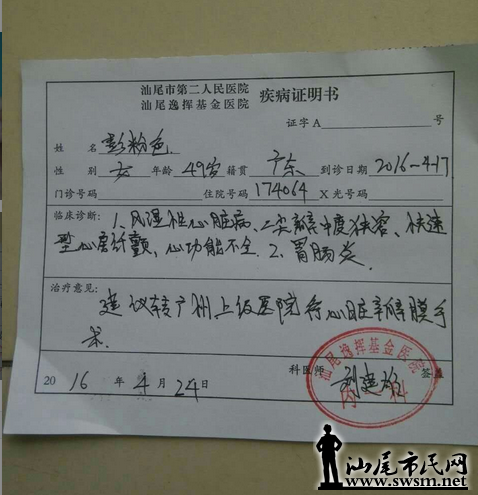 汕尾市第二人民医院
汕尾逸挥基金医院 疾病证明书
证字A 号
姓名 彭粉色
性别 女 年龄 49岁 籍贯 广东 到诊日期 2016-4-17
门诊号码 住院号码 174064 X光号码
临床诊断: 1、风湿性心脏病、二尖瓣中度狭窄、快速
型心房纤颤,心功能不全 2、胃肠炎、
治疗意见:
建议转广州上级医院行心脏瓣膜手
术.
科医师 签章
2016年4月24日
汕尾逸挥基金医院
内科
汕尾市民网
www.swsm.net